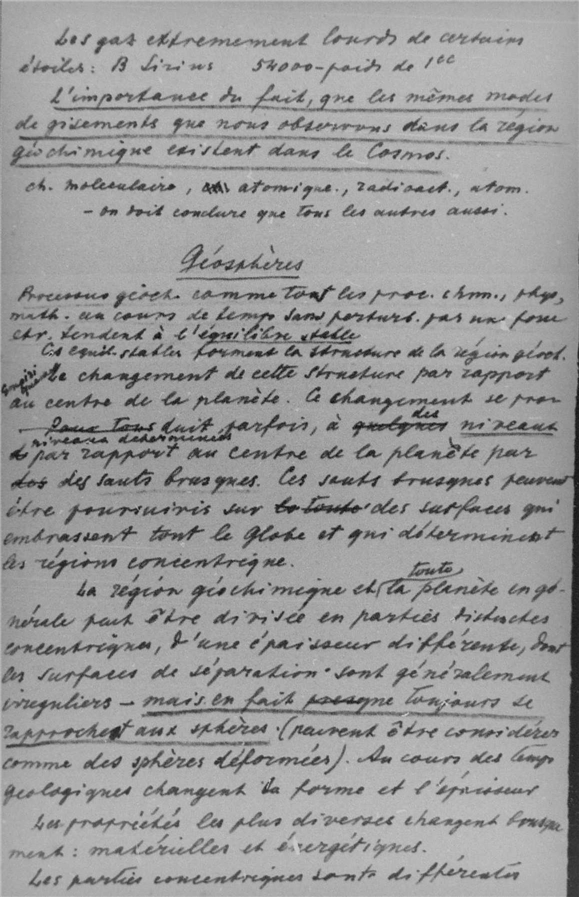 Les gaz extremement lourds de certains
étoiles: B Sirius 54000-poids de 1cc
L'importance du fait, que les mêmes modes
de gisements que nous observons dans la région
géochimique existent dans le Cosmos.
ch. moleculaire, atomique., radioact., atom.
– on doit conclure que tous les autres aussi.
Géosphères
Processus géoch. comme tous les proc. chm., phys,
math. au cours de temps sans perturb. par une
etr. tendent à l'équilibre stable
Ces équil. stables forment la structure de la région géoch.
Le changement de cette structure par rapport
au centre de la planète. Ce changement se pro-
duit parfois, à quelques des niveaux
niveaux determinées
par rapport au centre de la planète par
des sauts brusques. Ces sauts brusques peuvent
être poursuivis sur la toute des surfaces qui
embrassent tout le Globe et qui déterminent
les régions concentrique.
La région géochimique et la toute planète en gé-
nérale peut être divisée en parties distinctes
concentriques, d'une épaisseur différente, dont
les surfaces de séparation sont généralement
irreguliers – mais en fait presque toujours se
rapprochent aux sphères. (peuvent être considérées
comme des sphères déformées). Au cours des temps
géologiques changent la forme et l'épaisseur
Les propriétés les plus diverses changent brusque
ment: matérielles et énergétiques.
Les parties concentriques sont différentes